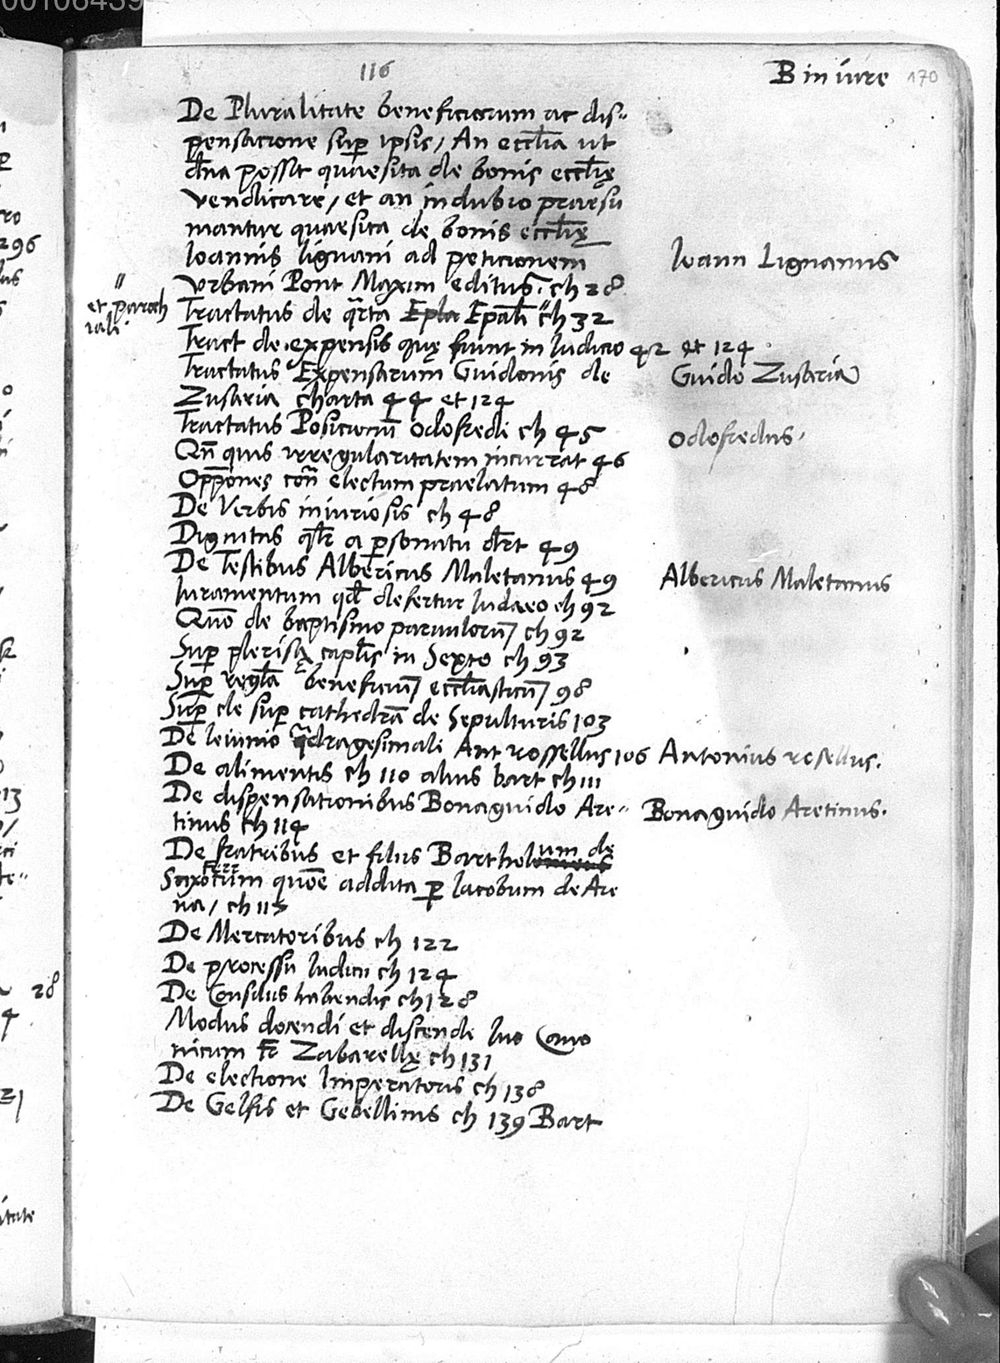 00106439
116
B in iure 170
De Pluralitate beneficiorum ac dis-
pensacione sup ipsis / An eccl̄ia ut
dn̄a possit quaesita de bonis eccl̄ię
vendicare / et an in dubio praesu
mantur quaesita de bonis eccl̄ię
Ioannis lignani ad peticionem Ioann Lignanus
Urbani Pont Maxim editus. ch 28
et paroch
iali
Tractatus de qr̄ta Epla Epāli ch 32
Tract de expensis quę fiunt in Iudicio 42 et 124
Tractatus Expensarum Guidonis de Guido Zusaria
Zusaria charta 44 et 124
Tractatus Posicionū Odofredi ch 45 Odofredus
Qn̄ quis irregularitatem incurrat 46
Opp̄ones con̄ electum praelatum 48
De Verbis iniuriosis ch 48
Dignitas ql̄r a psonatu dr̄t 49
De Testibus Albericus Maletanus 49 Albericus Maletanus
Iuramentum qd̄ defertur Iudaeo ch 92
Quō de baptismo parvulorū ch 92
Sup plerisq capl̄is in Sexto ch 93
Sup regl̄a beneficiū eccl̄iasticū 98
Sup cle sup cathedrā de Sepulturis 103
De Ieiunio qdragesimali Ant rossellus 106 Antonius rosellus.
De alimentis ch 110 alius bart ch 111
De dispensationibus Bonaguido Are- Bonaguido Aretinus.
tinus ch 114
De fratribus et filiis Bartholomeus um de
Saxoferr tum quōe addita p Iacobum de Are
na / ch 115
De Mercatoribus ch 122
De processu Iudicii ch 124
De Consiliis habendis ch 128
Modus docendi et discende Ius Cano
nicum Fr Zabarellę ch 131
De electione Imperatoris ch 138
De Gelfis et Gebellinis ch 139 Bart
296
28